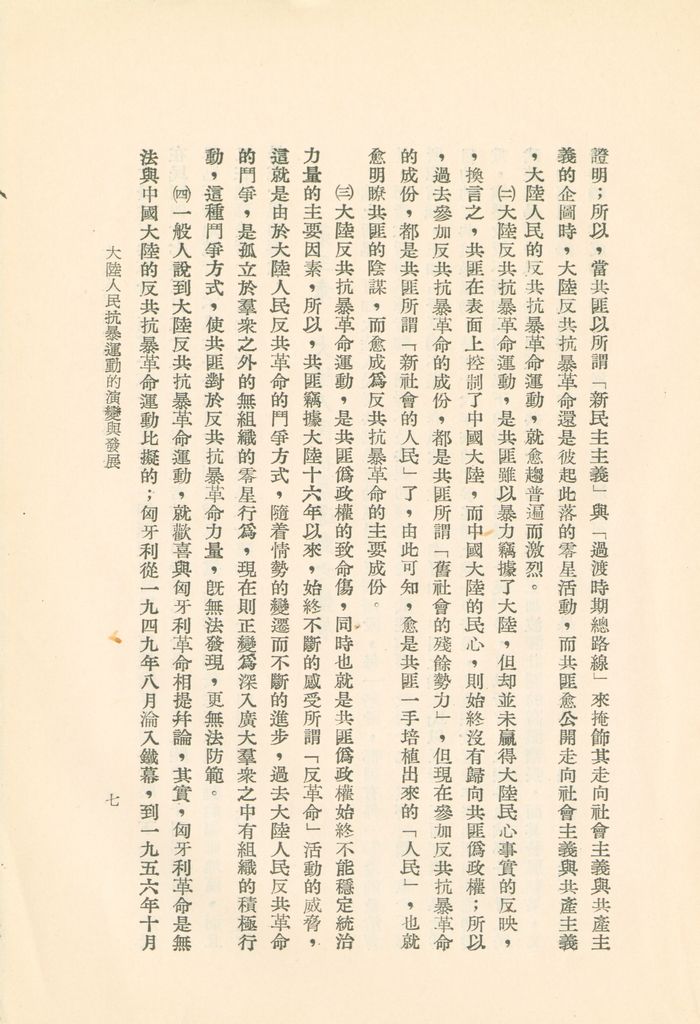 證明；所以，當共匪以所謂「新民主主義」與「過渡時期總路線」來掩飾其走向社會主義與共產主
義的企圖時，大陸反共抗暴革命還是彼起此落的零星活動，而共匪愈公開走向社會主義與共產主義
，大陸人民的反共抗暴革命運動，就愈趨普遍而激烈。
㈡大陸反共抗暴革命運動，是共匪雖以暴力竊據了大陸，但却並未贏得大陸民心事實的反映，
，換言之，共匪在表面上控制了中國大陸，而中國大陸的民心，則始終沒有歸向共匪僞政權；所以
，過去參加反共抗暴革命的成份，都是共匪所謂「舊社會的殘餘勢力」，但現在參加反共抗暴革命
的成份，都是共匪所謂「新社會的人民」了，由此可知，愈是共匪一手培植出來的「人民」，也就
愈明瞭共匪的陰謀，而愈成爲反共抗暴革命的主要成份。
㈢大陸反共抗暴革命運動，是共匪僞政權的致命傷，同時也就是共匪僞政權始終不能穩定統治
力量的主要因素，所以，共匪竊據大陸十六年以來，始終不斷的感受所謂「反革命」活動的威脅，
這就是由於大陸人民反共革命的鬥爭方式，隨着情勢的變遷而不斷的進步，過去大陸人民反共革命
的鬥爭，是孤立於羣衆之外的無組織的零星行爲，現在則正變爲深入廣大羣衆之中有組織的積極行
動，這種鬥爭方式，使共匪對於反共抗暴革命力量，旣無法發現，更無法防範。
㈣一般人說到大陸反共抗暴革命運動，就歡喜與匈牙利革命相提幷論，其實，匈牙利革命是無
法與中國大陸的反共抗暴革命運動比擬的；匈牙利從一九四九年八月淪入鐵幕，到一九五六年十月
大陸人民抗暴運動的演變與發展
七